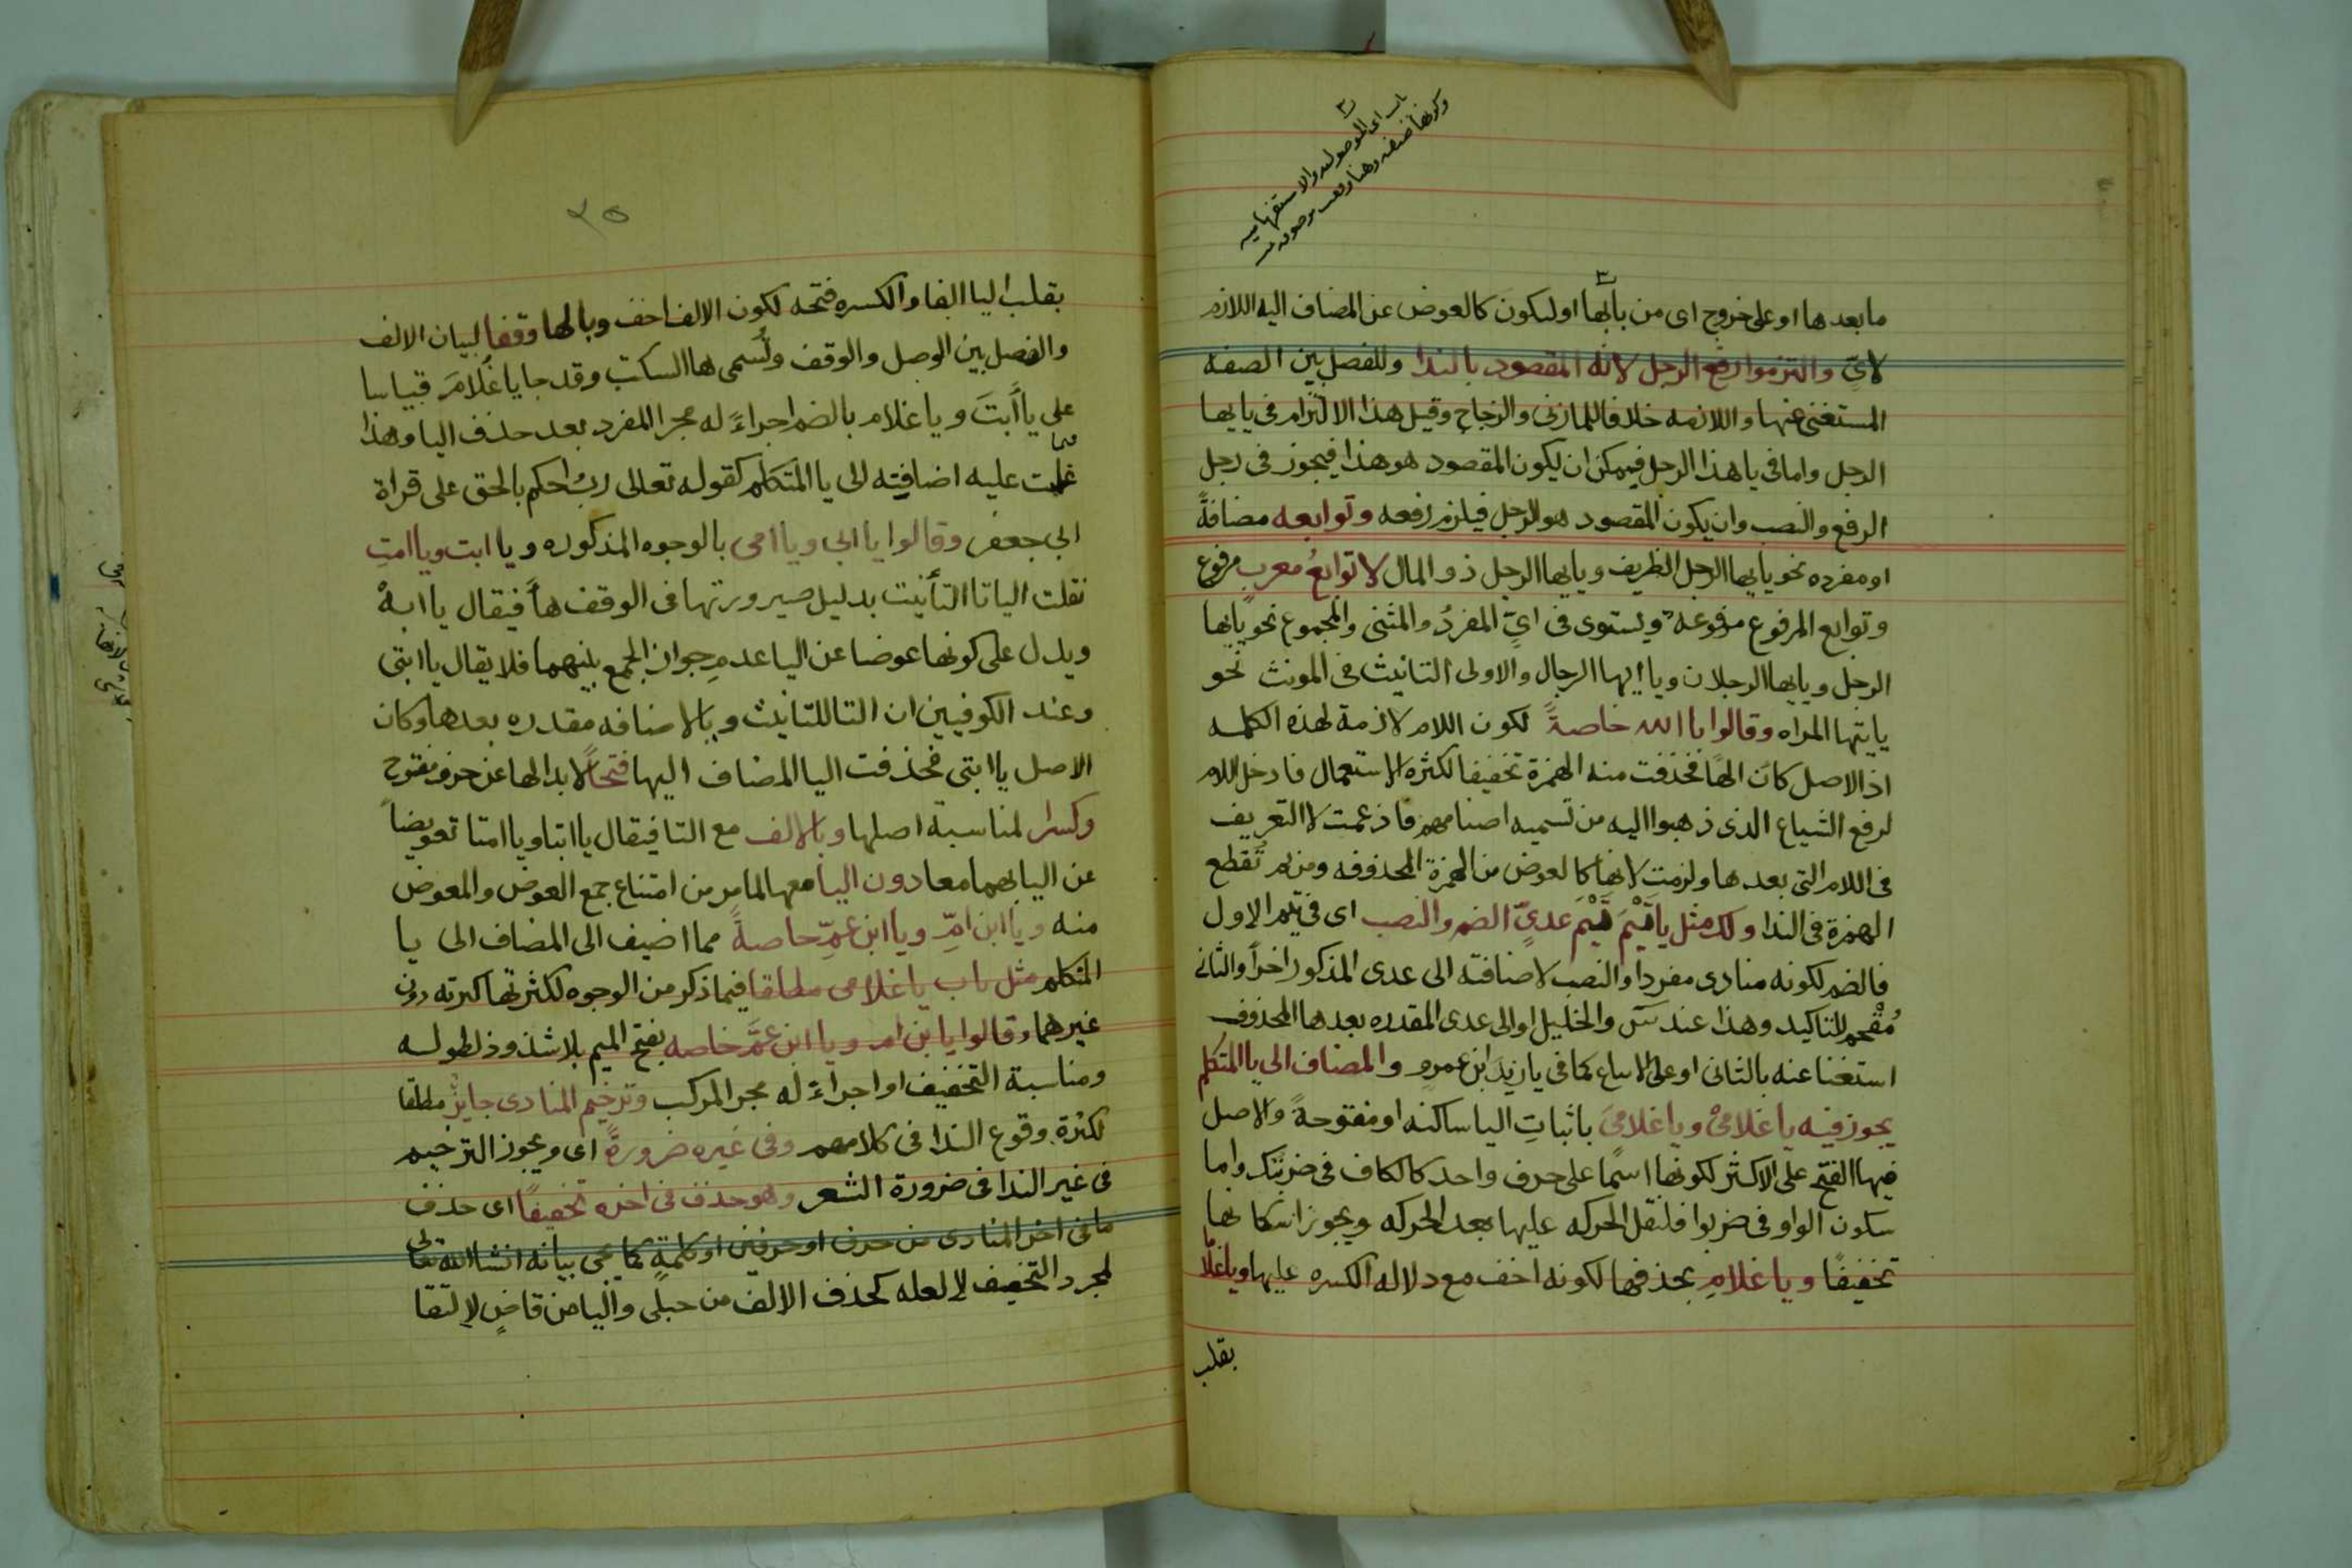 باب اى الموصوله والاستفهاميه
وكونها صفه وهنا وقعت موصوله
مابعدها او على خروج اى من بابها او ليكون كالعوض عن المضاف اليه اللازم
لاىٍّ والتزموا رفع الرجل لانّه المقصود بالندا وللفصل بين الصفه
المستغنى عنها واللازمه خلافا للمازنى والزجاج وقيل هذا الالتزام فى يا يها
الرجل واما فى يا هذا الرجل فيمكن ان يكون المقصود هو هذا فيجوز فى رجل
الرفع والنصب وان يكون المقصود هو الرجل فيلزم رفعه وتوابعه مضافةً
او مفرده نحو يا يها الرجل الظريف ويا يها الرجل ذو المال لا توابعُ معربٍ مرفوع
وتوابع المرفوع مرفوعه ويستوى فى اىٍّ المفردُ والمثنى والمجموع نحو يا يها
الرجل ويا يها الرجلان ويا ايها الرجال والاولى التانيث فى المونث نحو
يا يتها المراه وقالوا يا الله خاصةً لكون اللام لازمة لهذه الكلمه
اذ الاصل كان الهًا فحذفت منه الهمزة تخفيفا لكثرة الاستعمال فادخل اللام
لرفع الشياع الذى ذهبوا اليه من تسميه اصنامهم فا ذعمت لا التعريف
فى اللام التى بعدها ولزمت لانها كالعوض من الهمزة المحذوفه ومن ثم تُقطع
الهمزة فى الندا ولك مثل يا تَيْمَ تَيْمَ عدىٍّ الضم والنصب اى فى تيم الاول
فالضم لكونه منادى مفردا والنصب لاضافته الى عدى المذكور اخراً والثانى
مُقْحم للتاكيد وهذا عند س والخليل او الى عدى المقدره بعدها المحذوف
استغنا عنه بالثانى او على الاتباع كما فى يا زيدَ ابن عمرٍو والمضاف الى يا المتكلم
يجوز فيه يا غلامىْ ويا غلامىَ باثباتِ اليا ساكنه او مفتوحةً والاصل
فيها الفتح على الاكثر لكونها اسمًا على حرف واحد كالكاف فى ضربتك واما
سكون الواو فى ضربوا فلثقل الحركه عليها بعد الحركه ويجوز اسكانها
تخفيفًا ويا غلامِ بحذفها لكونه اخف مع دلاله الكسره عليها ويا غلاما
بقلب
٢٥
بقلب اليا الفا والكسره فتحه لكون الالف اخف وبالها وقفا لبيان الالف
والفصل بين الوصل والوقف وتُسمى ها السكت وقد جا يا غُلامَ قياسا
على يا أَبَتَ ويا غلام بالضم اجراءً له مجرا المفرد بعد حذف اليا وهذا
فيما غلبت عليه اضافته الى يا المتكلم كقوله تعالى ربُ احكم بالحق على قراة
ابى جعفر وقالوا يا ابى ويا امى بالوجوه المذكوره ويا ابت ويا امتِ
نقلت اليا تا التأنيث بدليل صيرورتها فى الوقف هاً فيقال يا ابهْ
ويدل على كونها عوضا عن اليا عدم جواز الجمع بينهما فلا يقال يا ابتى
وعند الكوفيين ان التا للتانيث ويا الاضافه مقدره بعدها وكان
الاصل يا ابتى فحذفت اليا المضاف اليها فتحًا لابدالها عن حرف مفتوح
وكسرا لمناسبة اصلها وبالالف مع التا فيقال يا ابتا ويا امتا تعويضاً
عن اليا بهما معا دون اليا معها لما مر من امتناع جمع العوض والمعوض
منه ويا ابن امِّ ويا ابن عمِّ خاصةً مما اضيف الى المضاف الى يا
المتكلم مثل باب يا غلامى مطلقا فيما ذكر من الوجوه لكثرتها كثرته دون
غيرهما وقالوا يا بن ام ويا ابن عمَّ خاصه بفتح الميم بلا شذوذ لطوله
ومناسبة التخفيف او اجراءً له مجر المركب وترخيم المنادى جايزٌ مطلقا
لكثرة وقوع الندا فى كلامهم وفى غيره ضرورةً اى ويجوز الترخيم
فى غير الندا فى ضرورة الشعر وهو حذف فى اخره تخفيفًا اى حذف
ما فى اخر المنادى من حرف او حرفين او كلمةٍ كما يجى بيانه انشا الله تعالى
لمجرد التخفيف لا لعله كحذف الالف من حبلى واليا من قاضٍ لالتقا